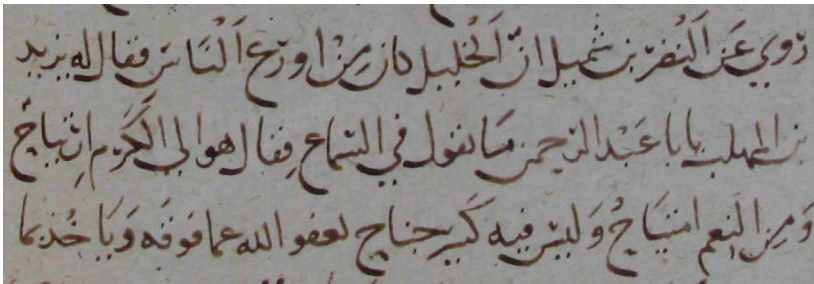 روي عَن النضر بن شميل انّ الخليل كان مِنْ اورَع النَاسِ فقال له يزيد
بن المهلب يابا عَبْد الرحمن مَا تقول في السَّماع فقال هو الى الكَرَم ارتياحٌ
وَمِنَ النِعم امتيَاحٌ وَليسَ فيه كَبير جناح لعفو الله عما فوقه وَيَاخذ بما